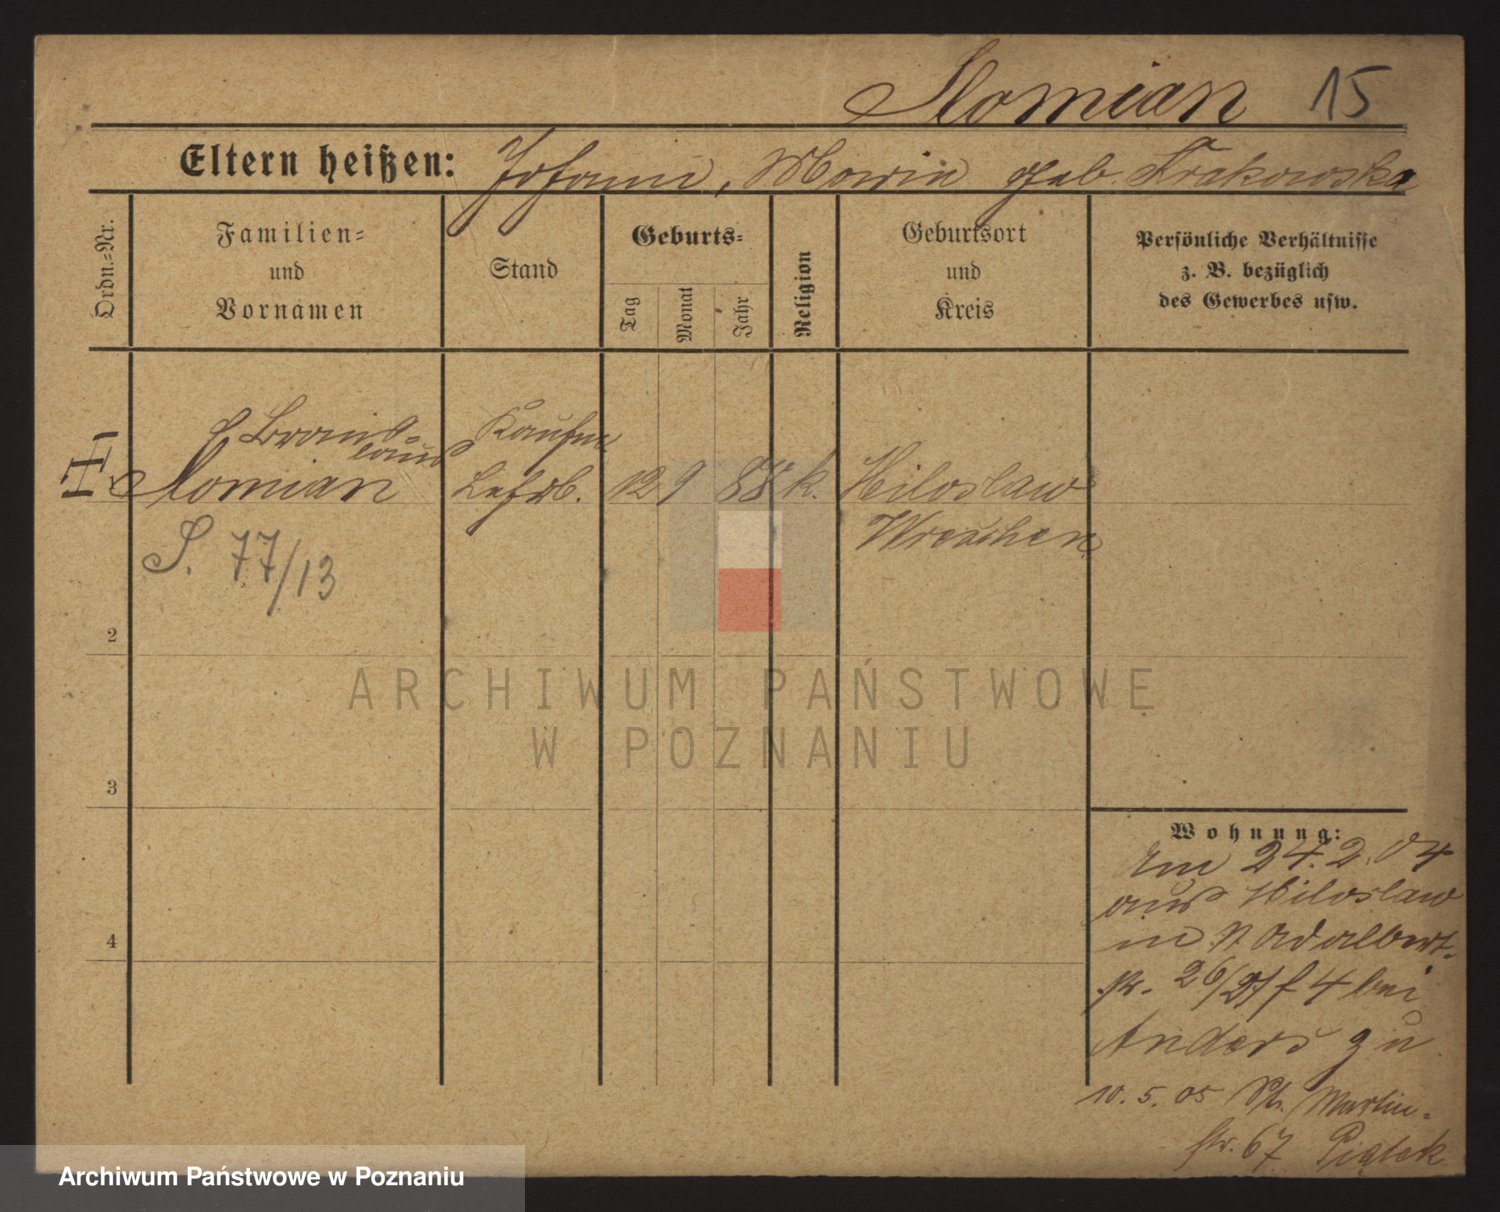 Slomian 15
Eltern heißen: Johann, Maria geb. Krakowska
Ordn.-Nr.
Familien- und Vornamen
Stand
Geburts-
Tag
Monat
Jahr
Religion
Geburtsort und Kreis
Persönliche Verhältnisse
z. B. bezüglich
des Gewerbes usw.
Slomian
Kaufm
Lehrl. 12 9 88 k. Miloslaw
Wreschen
S. 77/13
2
3
4
Wohnung:
Am 24.2.04
aus Miloslaw
in St Adalbert-
str. 26/27 4 bei
Anders zu
10.5.05 St. Martin-
str. 67 Piątek
ARCHIWUM PAŃSTWOWE
W POZNANIU
Archiwum Państwowe w Poznaniu